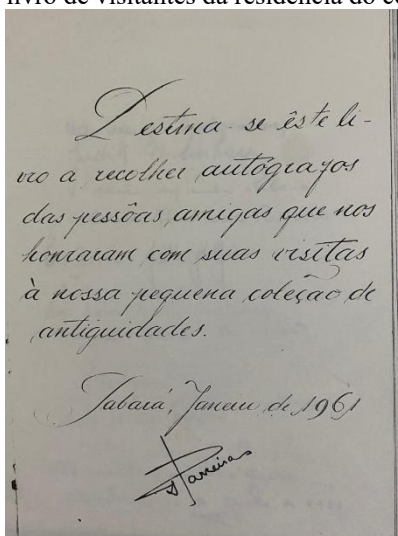 livro de visitantes da residência do co
Destina-se êste li-
vro a recolher autógrafos
das pessôas amigas que nos
honraram com suas visitas
à nossa pequena coleção de
antiguidades.
Sabará, Janeiro de 1961